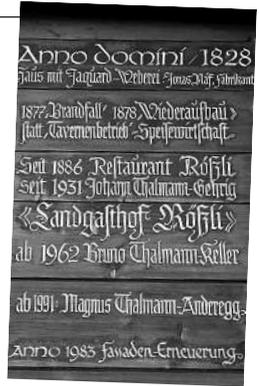 Anno domini 1828
Haus mit Jaquard-Weberei Jonas Näf, Fabrikant
1877, Brandfall 1878 Wiederaufbau
statt, Tavernenbetrieb - Speisewirtschaft
Seit 1886 Restaurant Rößli
seit 1931 Johann Thalmann-Gehrig
«Landgasthof Rößli»
ab 1962 Bruno Thalmann-Keller
ab 1991 Magnus Thalmann-Anderegg
Anno 1983 Fassaden-Erneuerung